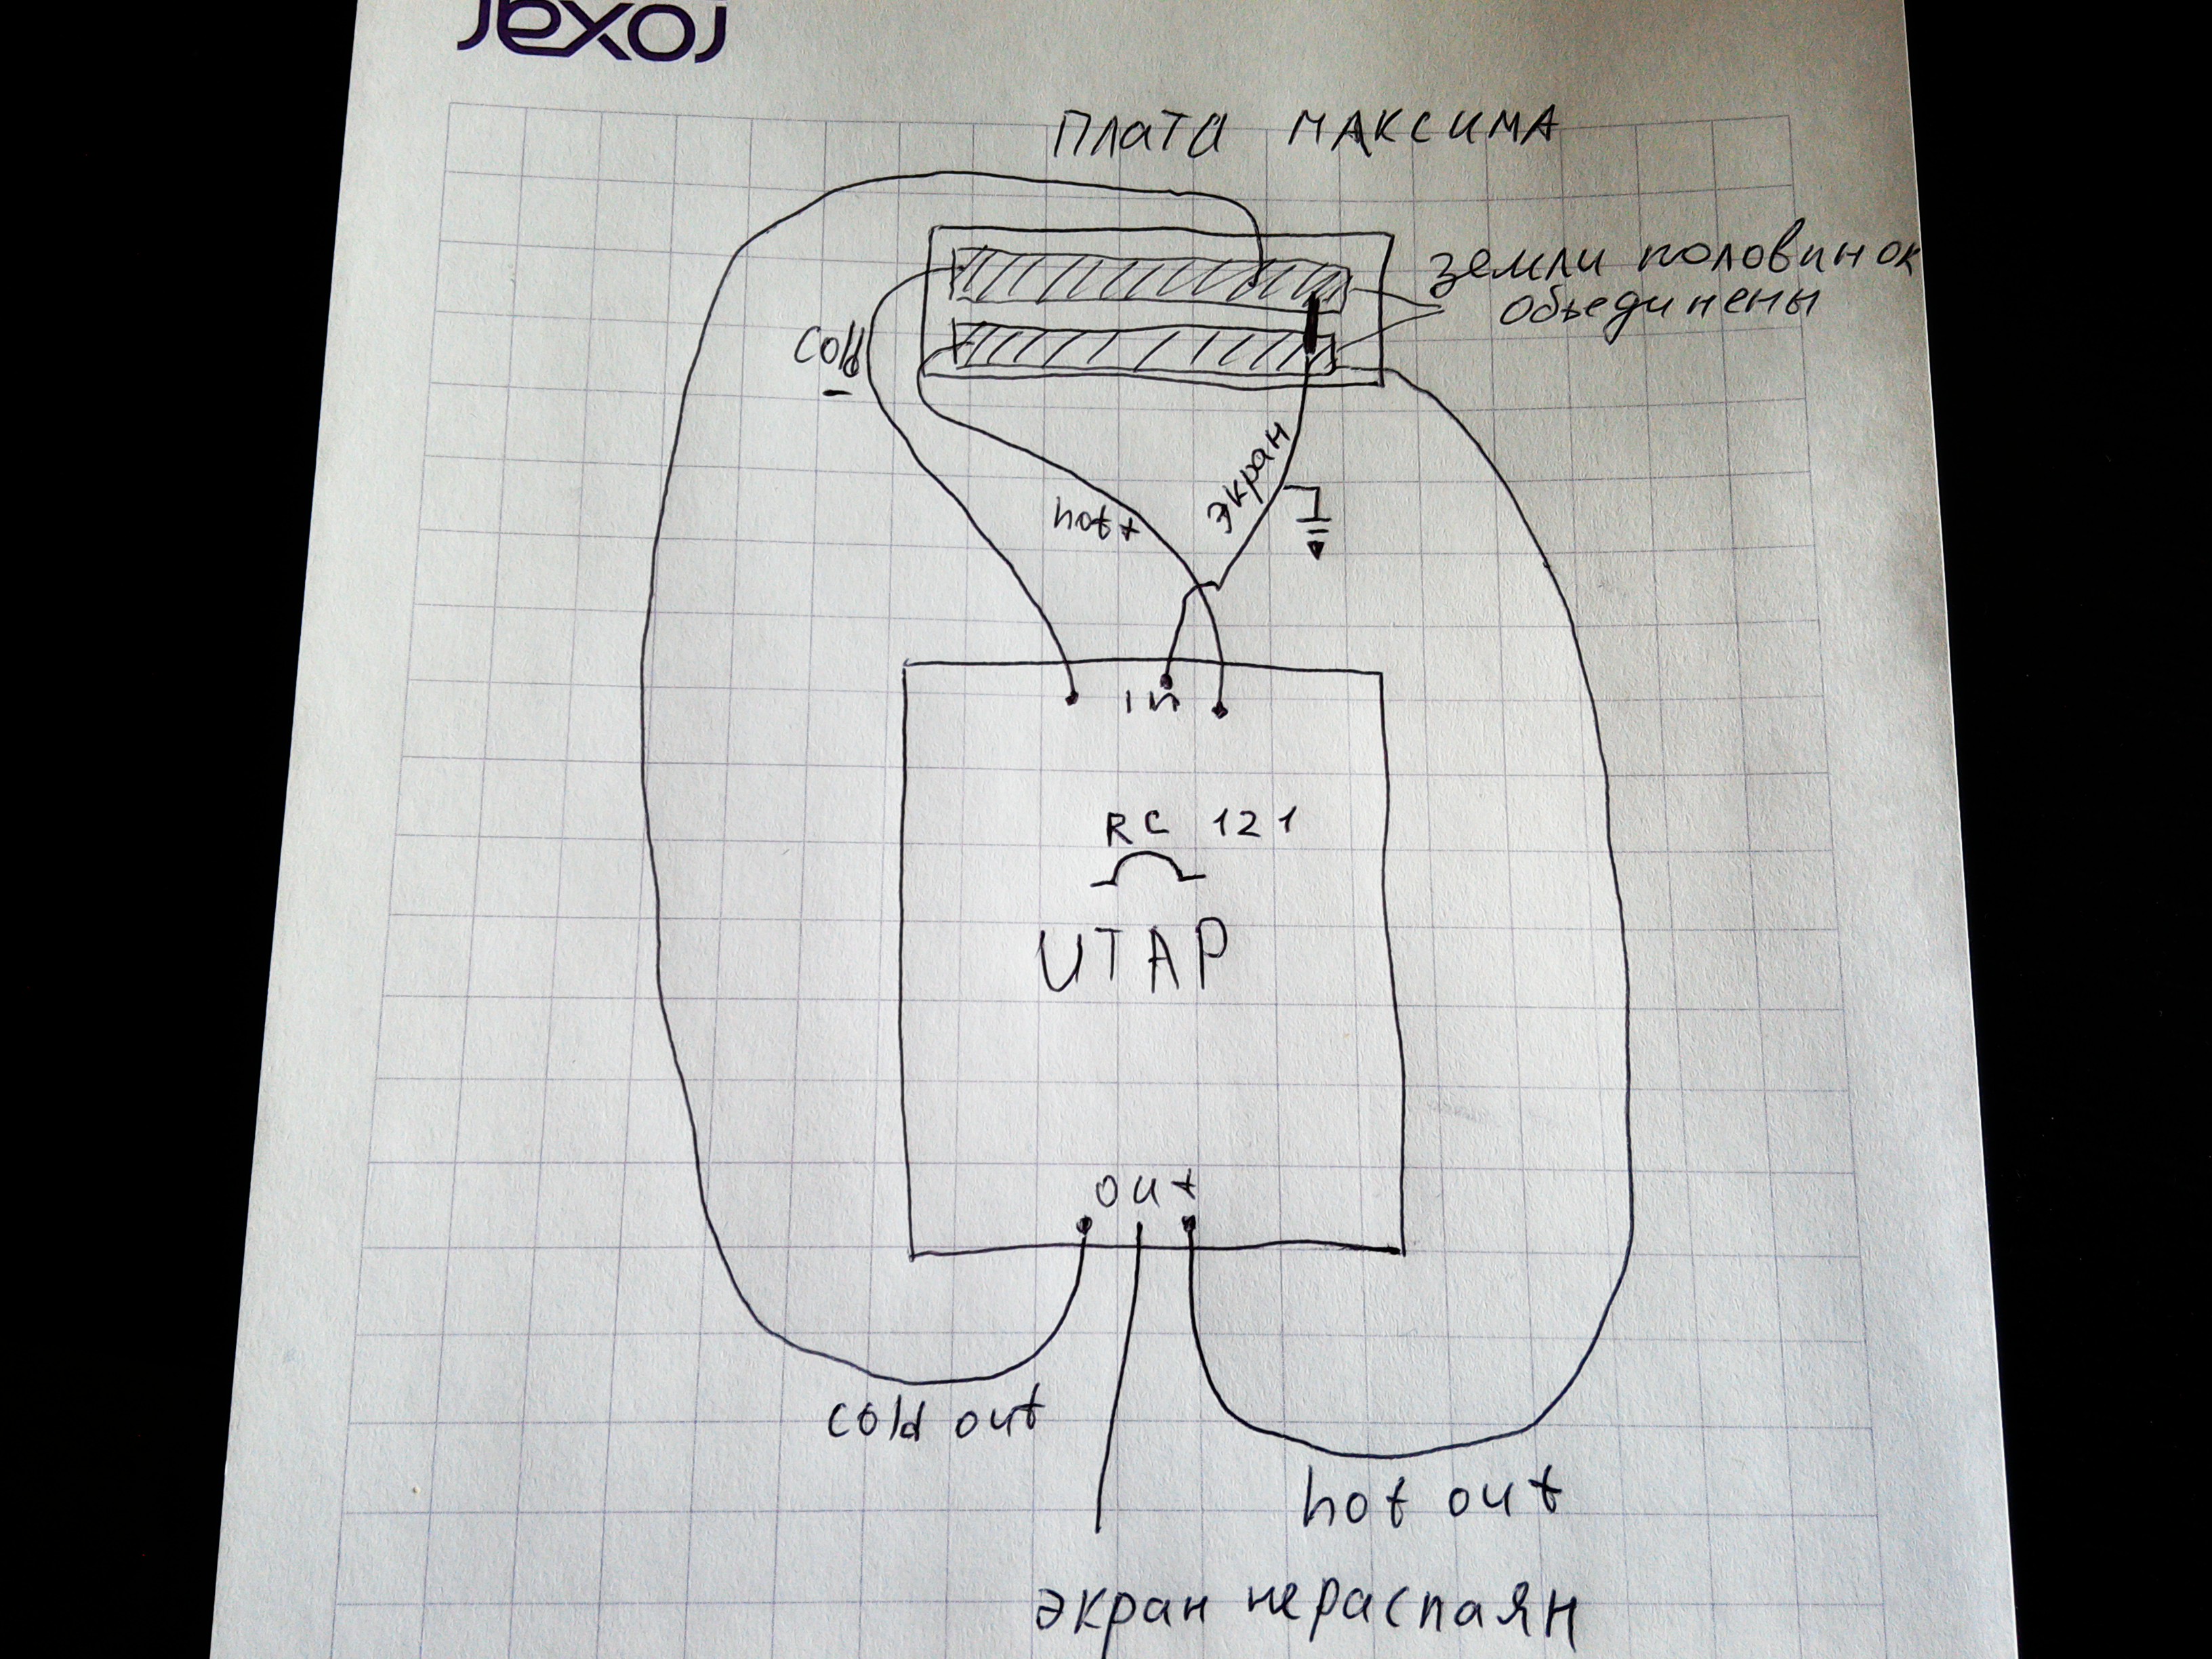 ГОХАГ
плата МАКСИМА
земли половинок
объединены
cold
–
hot +
экран
in
RC 121
UTAP
out
cold out
hot out
экран нераспаян